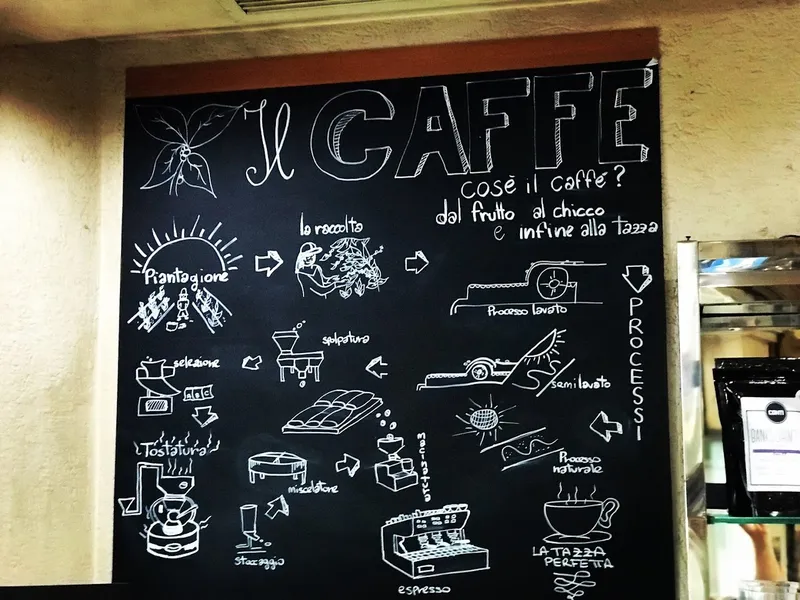 Il CAFFE
cosè il caffé?
dal frutto al chicco
e infine alla tazza
Piantagione
la raccolta
Processo lavato
PROCESSI
semilavato
Processo
naturale
spolpatura
selezione
a B C
Tostatura
stoccaggio
miscelatore
macinatura
espresso
LA TAZZA
PERFETTA